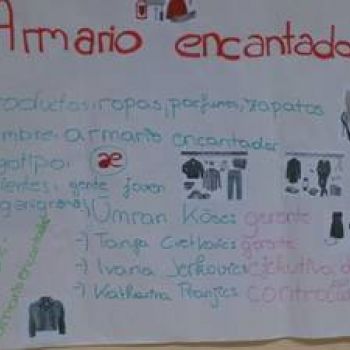 Armario encantado
productos: ropas, parfums, zapatos
nombre: armario encantador
logotipo: ae
clientes: gente joven
organigrama
Ümran Köses gerente
-) Tanja Cvetkovics gerente
-) Ivana Jerkovics ejecutiva d
-) Katharina Pranjics
armario encantado